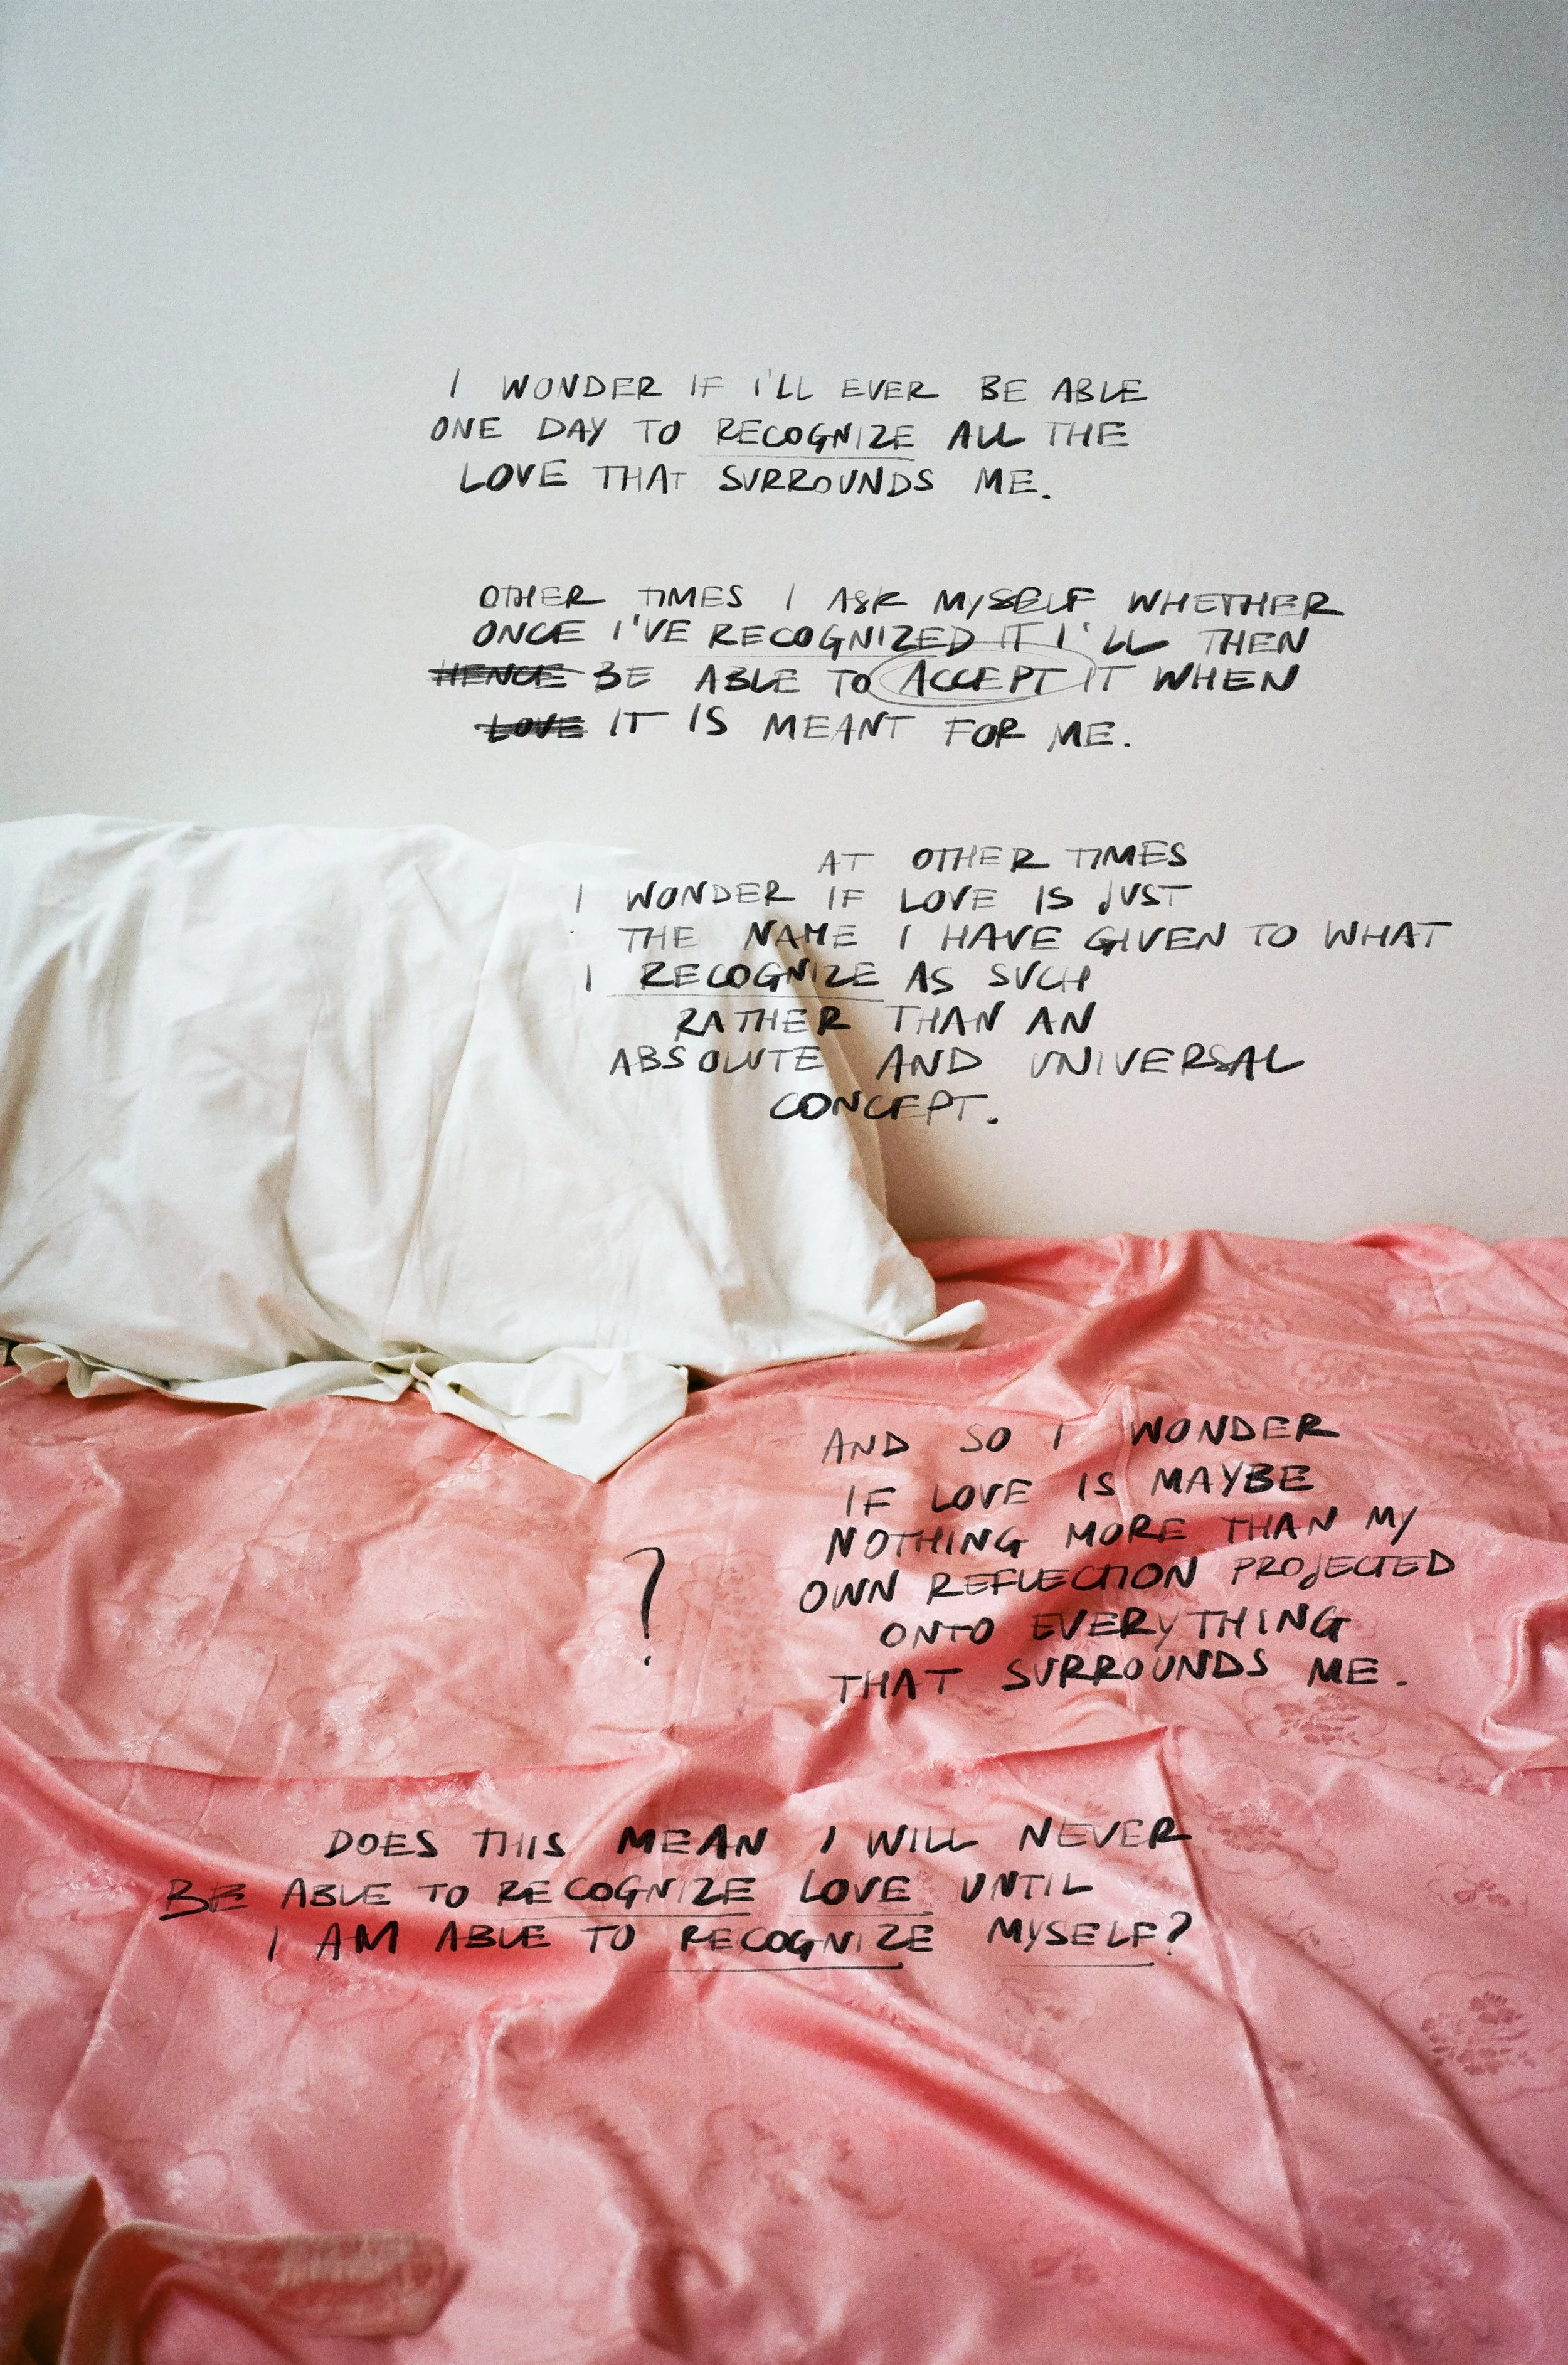 I WONDER IF I'LL EVER BE ABLE
ONE DAY TO RECOGNIZE ALL THE
LOVE THAT SURROUNDS ME.
OTHER TIMES I ASK MYSELF WHETHER
ONCE I'VE RECOGNIZED IT I'LL THEN
HENCE BE ABLE TO ACCEPT IT WHEN
LOVE IT IS MEANT FOR ME.
AT OTHER TIMES
I WONDER IF LOVE IS JUST
THE NAME I HAVE GIVEN TO WHAT
I RECOGNIZE AS SUCH
RATHER THAN AN
ABSOLUTE AND UNIVERSAL
CONCEPT.
AND SO I WONDER
IF LOVE IS MAYBE
NOTHING MORE THAN MY
OWN REFLECTION PROJECTED
ONTO EVERYTHING
THAT SURROUNDS ME.
?
DOES THIS MEAN I WILL NEVER
BE ABLE TO RECOGNIZE LOVE UNTIL
I AM ABLE TO RECOGNIZE MYSELF?